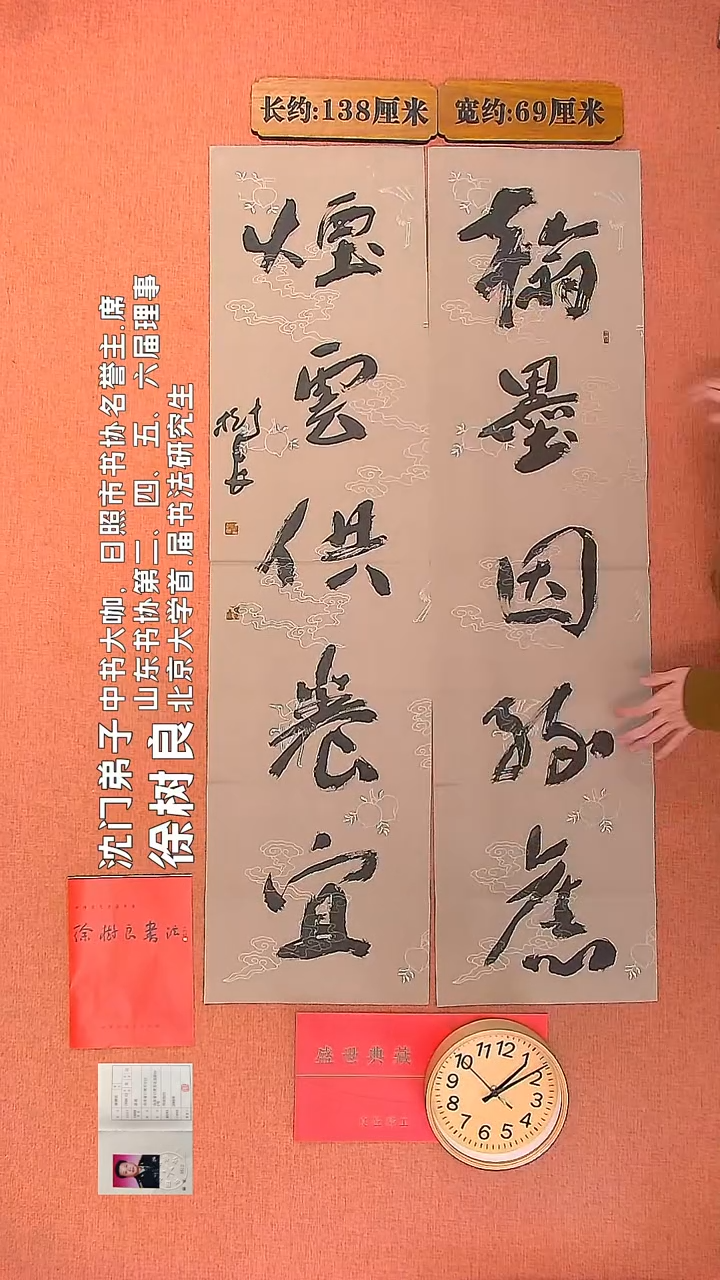 长约:138厘米
宽约:69厘米
翰墨因緣舊
煙雲供養宜
樹良
沈门弟子 中书大咖，日照市书协名誉主.席
山东书协第二、四、五、六届理事
徐树良 北京大学首.届书法研究生
徐樹良書法
盛世典藏
12 1 2 3 4 5 6 7 8 9 10 11